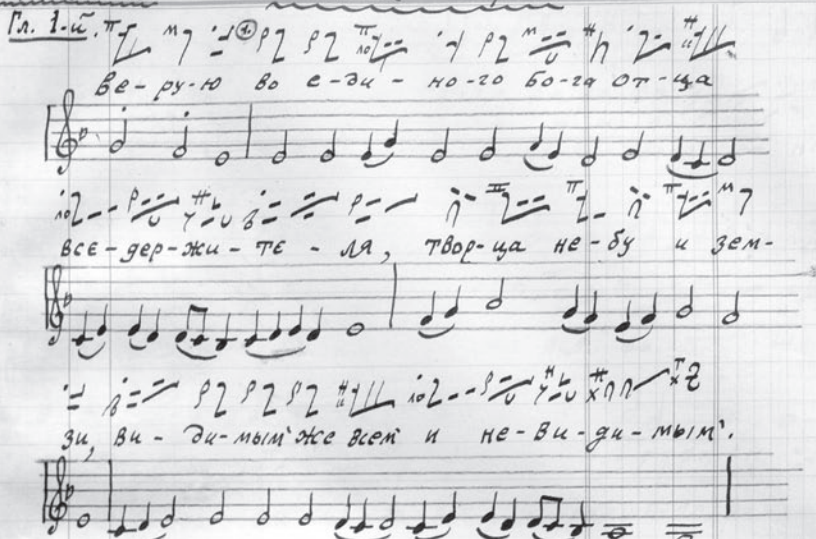 Гл. 1-й.
ве-ру-ю во е-ди-но-го бо-га от-ца
все-дер-жи-те-ля, твор-ца не-бу и зем-
зи, ви-ди-мымъ же всем и не-ви-ди-мымъ.